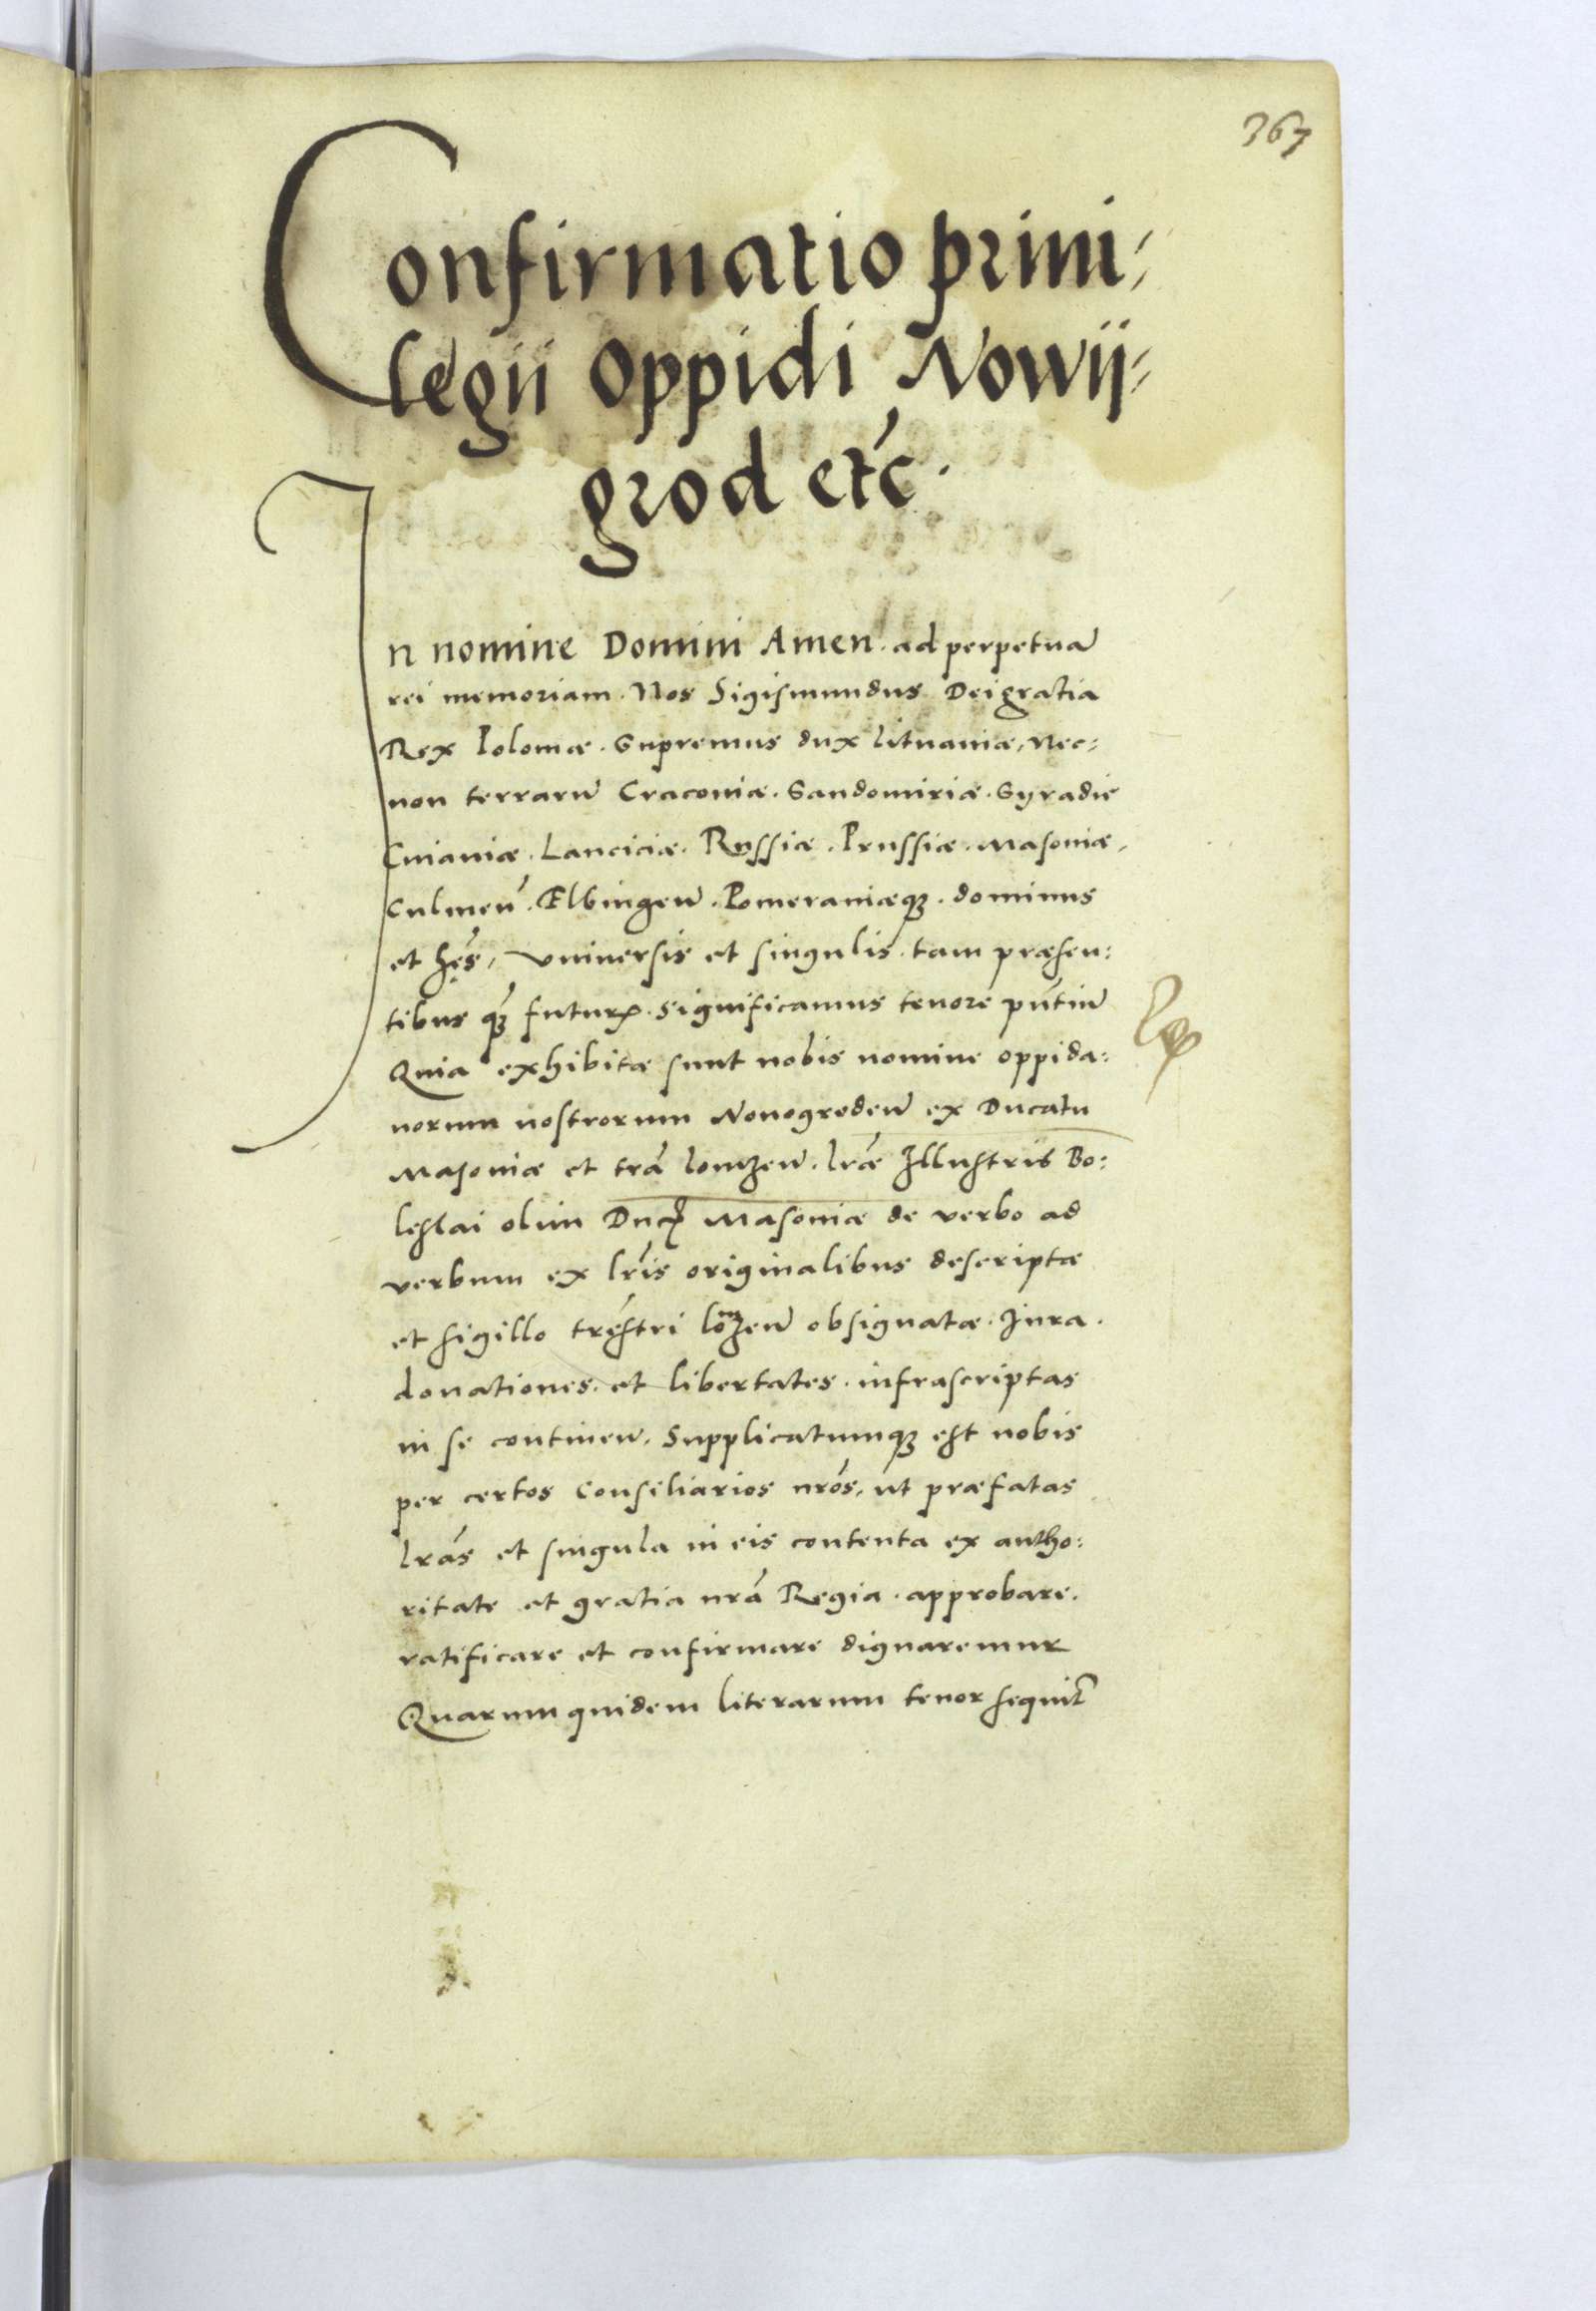 367
Confirmatio priui⸗
legii oppidi Nowij⸗
grod etc̃.
In nomine Domini Amen. ad perpetuã
rei memoriam. Nos Sigismundus Dei gratia
Rex Poloniæ. Supremus dux Lituaniæ, Nec⸗
non terrarũ Cracouiæ. Sandomiriæ. Syradiẽ
Cuiauiæ. Lanciciæ. Russiæ. Prussiæ. Masouiæ.
Culmeñ. Elbingeñ. Pomeraniæqꝫ. dominus
et hęs̃, Vniuersis et singulis. tam præsen:
tibus qꝫ̃ futurꝭ. significamus tenore pñtiũ
Quia exhibitæ sunt nobis nomine oppida:
norum nostrorum Nouogrodeñ ex Ducatu
Masouiæ et trã lomzeñ. lræ̃ Illustris Bo:
leslai olim Ducꝭ Masouiæ de verbo ad
verbum ex lrĩs originalibus descriptæ
et sigillo trẽstri lomzeñ obsignatæ. Iura.
donationes. et libertates. infrascriptas
in se contineñ. Supplicatumqꝫ est nobis
per certos Consiliarios nrõs, ut præfatas
lrãs et singula in eis contenta ex autho:
ritate et gratia nrã Regia. approbare.
ratificare et confirmare dignaremur
Quarum quidem literarum tenor sequit᷑